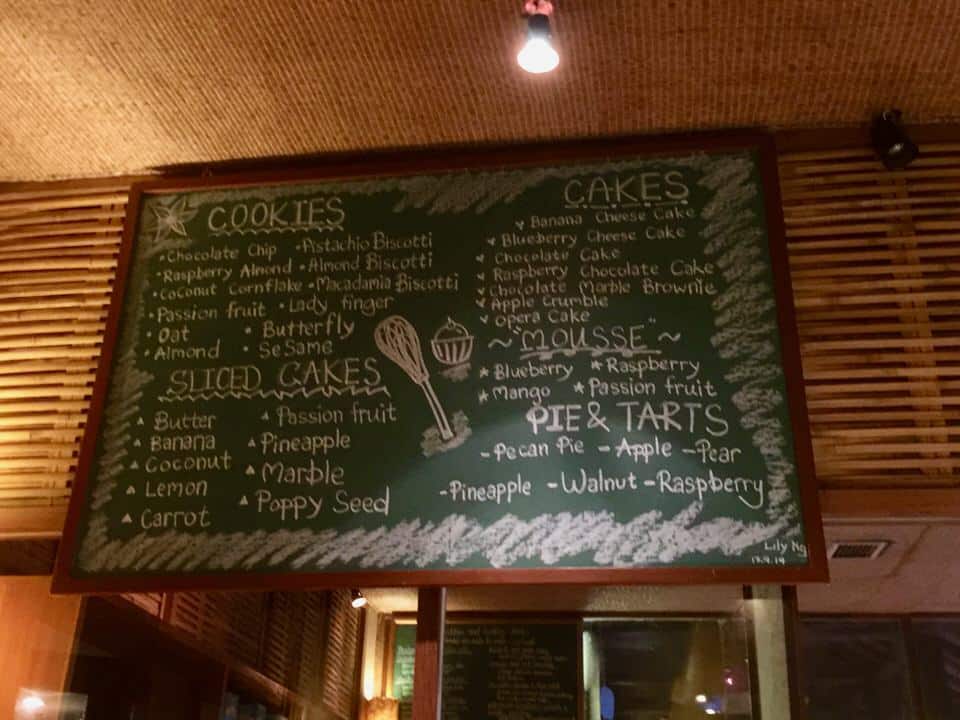 COOKIES
•Chocolate Chip •Pistachio Biscotti
•Raspberry Almond •Almond Biscotti
•Coconut Cornflake •Macadamia Biscotti
•Passion fruit •Lady finger
•Oat • Butterfly
•Almond • SeSame
SLICED CAKES
Butter Passion fruit
Banana Pineapple
Coconut Marble
Lemon Poppy Seed
Carrot
CAKES
Banana Cheese Cake
Blueberry Cheese Cake
Chocolate Cake
Raspberry Chocolate Cake
Chocolate Marble Brownie
Apple Crumble
Opera Cake
~"MOUSSE"~
*Blueberry *Raspberry
*Mango *Passion fruit
PIE & TARTS
-Pecan Pie -Apple -Pear
-Pineapple -Walnut -Raspberry
Lily Ng